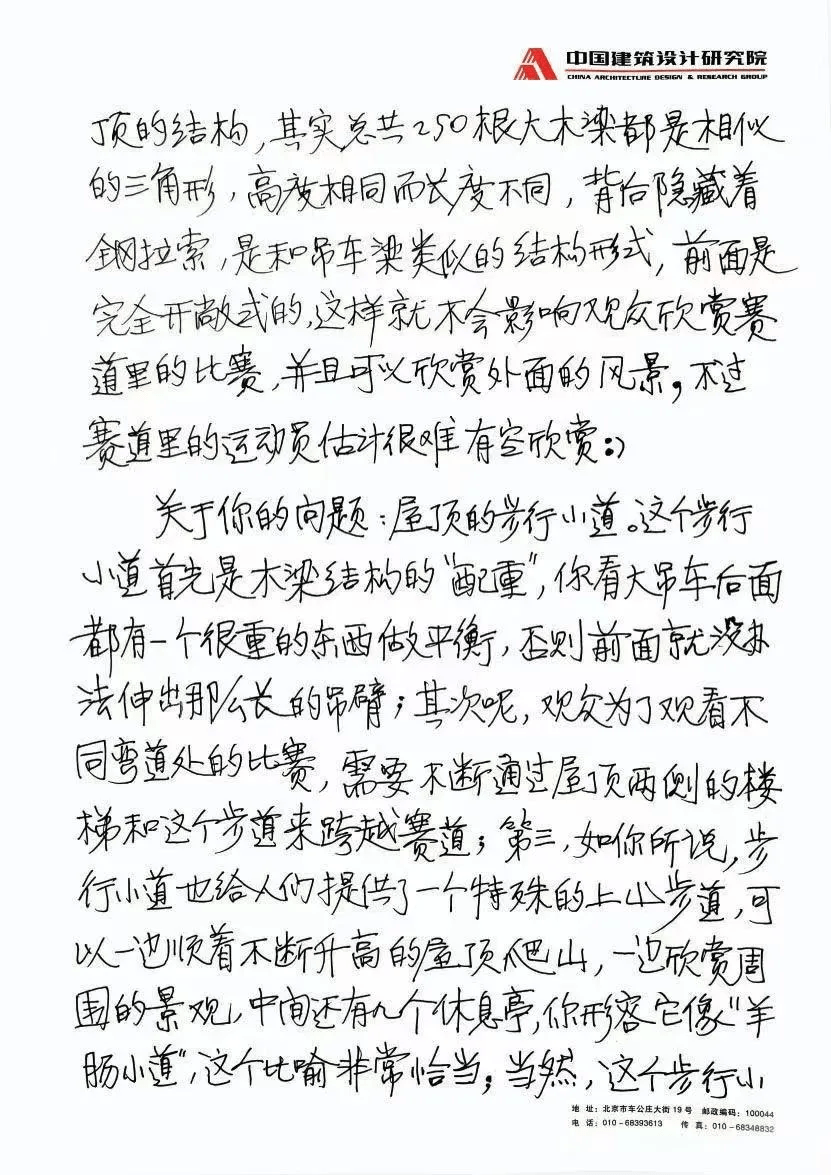 中国建筑设计研究院
CHINA ARCHITECTURE DESIGN & RESEARCH GROUP
顶的结构,其实总共250根大木梁都是相似
的三角形,高度相同而长度不同,背后隐藏着
钢拉索,是和吊车梁类似的结构形式,前面是
完全开敞式的,这样就不会影响观众欣赏赛
道里的比赛,并且可以欣赏外面的风景,不过
赛道里的运动员估计很难有空欣赏:)
关于你的问题:屋顶的步行小道。这个步行
小道首先是木梁结构的“配重”,你看大吊车后面
都有一个很重的东西做平衡,否则前面就没办
法伸出那么长的吊臂;其次呢,观众为了观看不
同弯道处的比赛,需要不断通过屋顶两侧的楼
梯和这个步道来跨越赛道;第三,如你所说,步
行小道也给人们提供了一个特殊的上山步道,可
以一边顺着不断升高的屋顶爬山,一边欣赏周
围的景观,中间还有九个休息亭,你形容它像“羊
肠小道”,这个比喻非常恰当;当然,这个步行小
地 址:北京市车公庄大街19号 邮政编码:100044
电 话:010-68393613 传 真:010-68348832